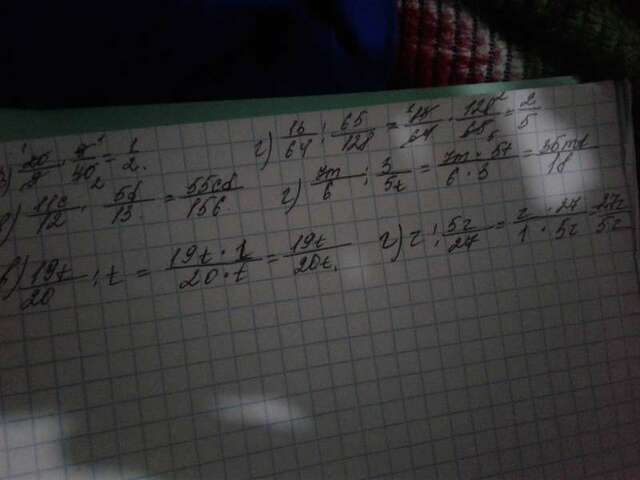 в) 20/9 · 9/40 = 1/2. г) 13/64 : 65/128 = 13/64 · 128/65 = 2/5
в) 11c/12 · 5d/13. = 55cd/156. г) 7m/6 : 3/5t = 7m · 5t/6 · 3 = 35mt/18
в) 19t/20 : t = 19t · 1/20 · t = 19t/20t. г) z : 5z/27 = z · 27/1 · 5z = 27z/5z